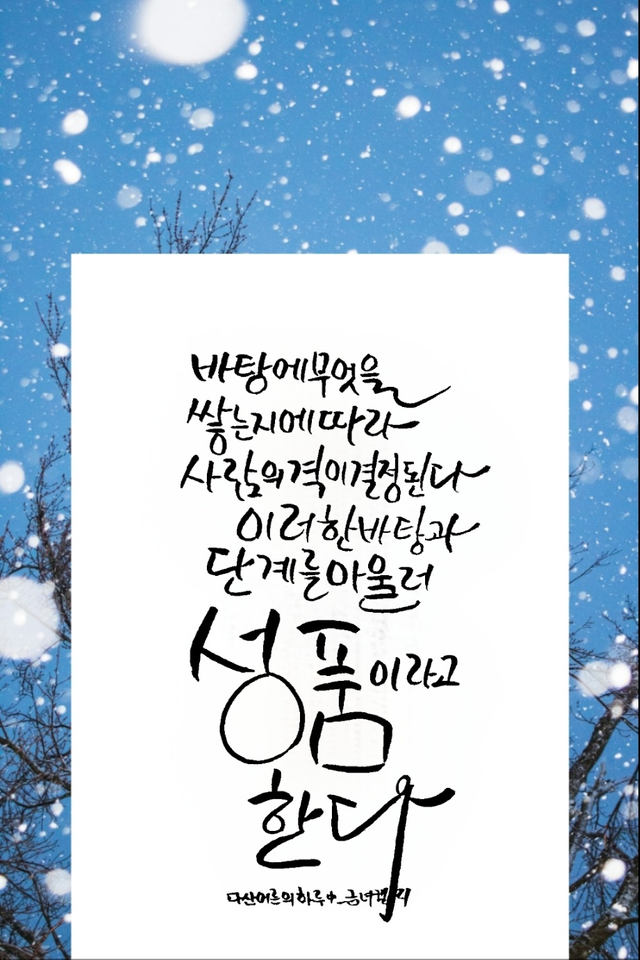 바탕에 무엇을
쌓는지에 따라
사람의 격이 결정된다
이러한 바탕과
단계를 아울러
성품이라고
한다
다산어른의하루中